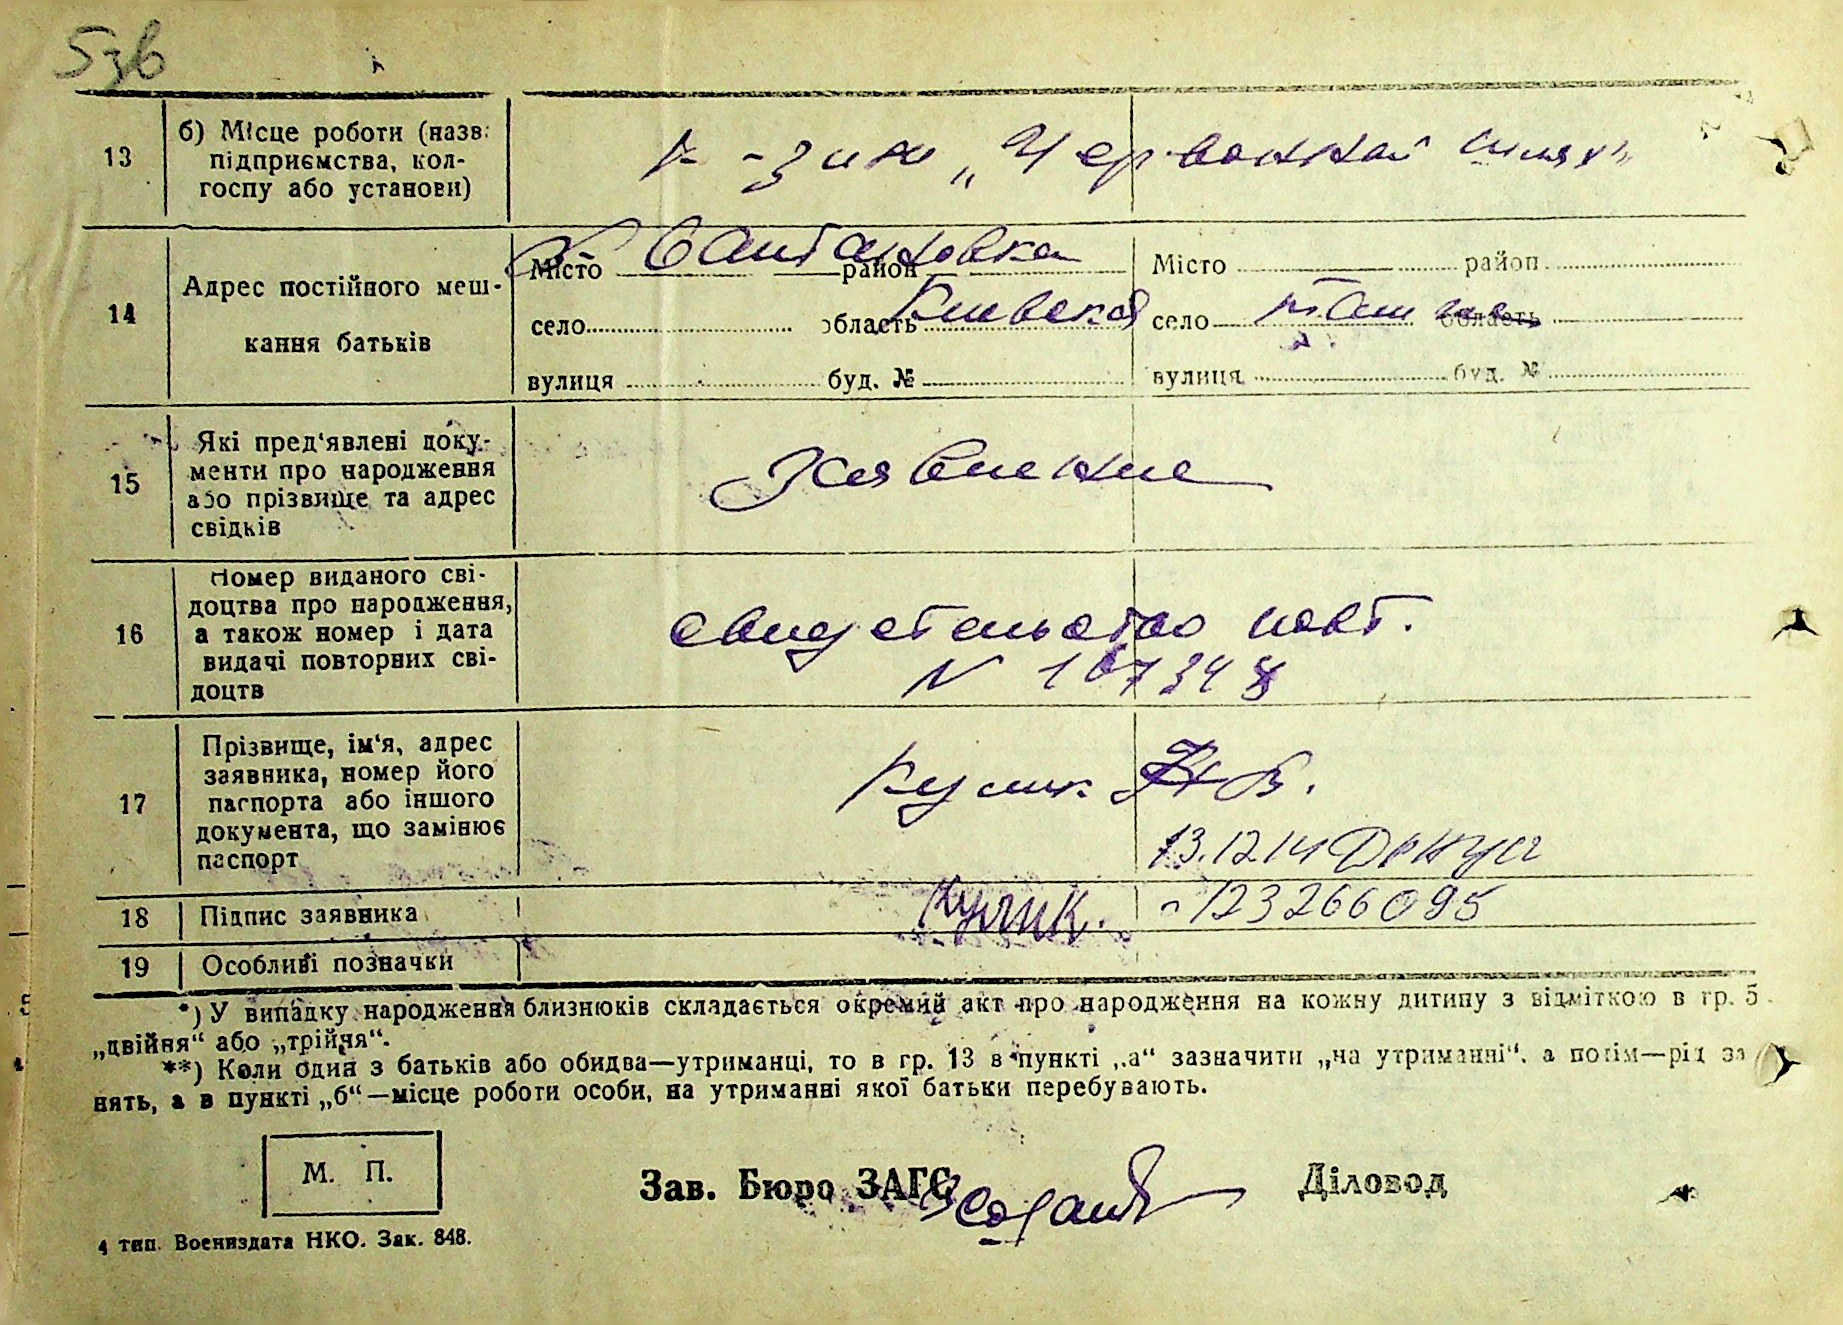 5зв
13
б) Місце роботи (назв:
підприємства, кол-
госпу або установи)
к-зим „Червонный шлях"
14
Адрес постійного меш-
кання батьків
Місто район
село область Киевская
вулиця буд. №
Місто район
село область
вулиця буд. №
15
Які пред'явлені доку-
менти про народження
або прізвище та адрес
свідків
Заявление
16
Номер виданого сві-
доцтва про народження,
а також номер і дата
видачі повторних сві-
доцтв
свидетельство повт.
N 167348
17
Прізвище, ім'я, адрес
заявника, номер його
паспорта або іншого
документа, що замінює
паспорт
Кулик
13.12.14
18
Підпис заявника
Кулик.
123266095
19
Особливі позначки
*) У випадку народження близнюків складається окремий акт про народження на кожну дитину з відміткою в гр. 5
„двійня“ або „трійня“.
**) Коли один з батьків або обидва—утриманці, то в гр. 13 в пункті „а“ зазначити „на утриманні“, а потім—рід за
нять, а в пункті „б“—місце роботи особи, на утриманні якої батьки перебувають.
М. П.
Зав. Бюро ЗАГС
Діловод
4 тип. Воениздата НКО. Зак. 848.